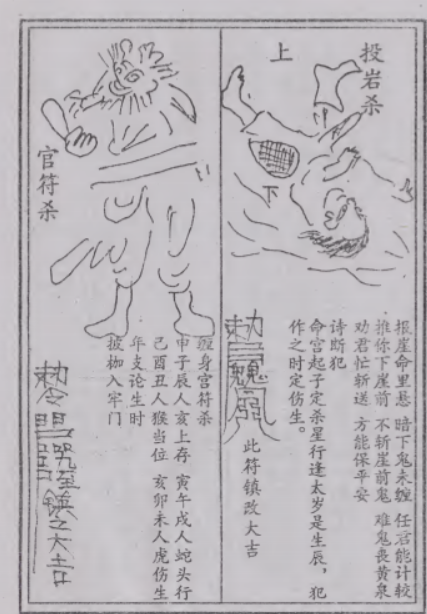 投岩杀
上
下
报崖命里悬 暗下鬼来缠 任君能计较
推你下崖前 不斩崖前鬼 难鬼丧黄泉
劝君忙斩送 方能保平安
诗断犯
命宫起子定杀星行逢太岁是生辰，犯
作之时定伤生。
此符镇改大吉
官符杀
身宫符杀
申子辰人亥上存 寅午戌人蛇头行
己酉丑人猴当位 亥卯未人虎伤生
年支论生时
披枷入牢门
镇之大吉